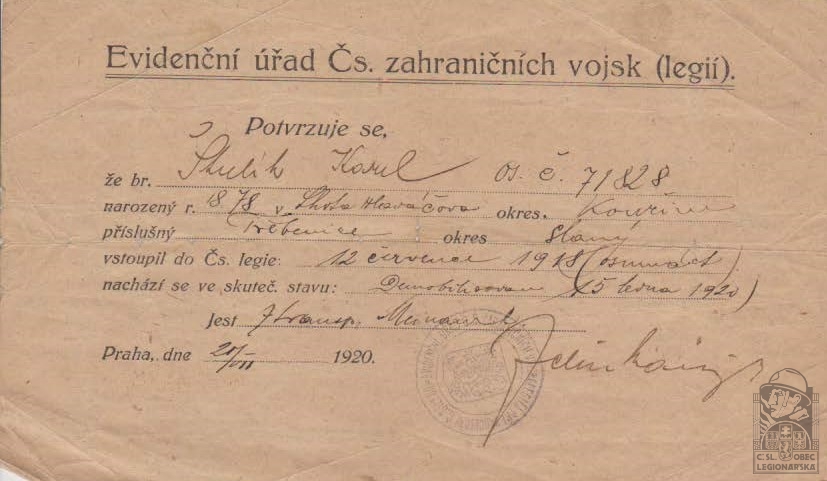 Evidenční úřad Čs. zahraničních vojsk (legií).
Potvrzuje se,
že br. Škulík Karel os. č. 71828
narozený r. 1878 v Lhota Hlaváčova okres. Kouřim
příslušný Třebenice okres Slaný
vstoupil do Čs. legie: 12 července 1918 (osmnáct)
nachází se ve skuteč. stavu: Demobilisovan (15 ledna 1920)
Jest 7 transp.
Praha, dne 20/VII 1920.
Č. SL. OBEC
LEGIONÁŘSKÁ